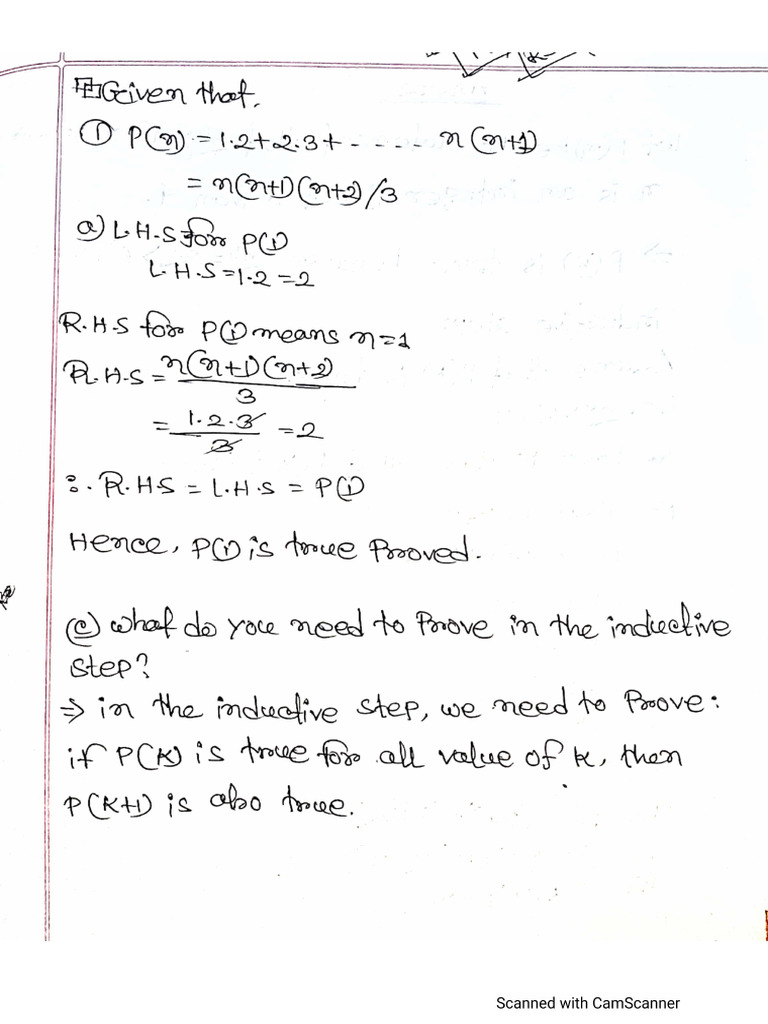 Given that,
① P(n) = 1.2+2.3+ - .... n (n+1)
= n(n+1)(n+2)/3
a) L.H.S for P(1)
L.H.S = 1.2 = 2
R.H.S for P(1) means n=1
R.H.S = n(n+1)(n+2)
3
= 1.2.3 = 2
3
∴ R.H.S = L.H.S = P(1)
Hence, P(1) is true Proved.
(c) What do you need to Prove in the inductive
step?
⇒ in the inductive step, we need to Prove:
if P(K) is true for all value of k, then
P(K+1) is also true.
Scanned with CamScanner